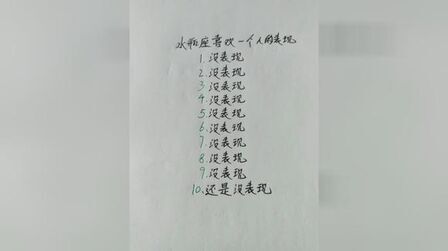 水瓶座喜欢一个人的表现
1.没表现
2.没表现
3.没表现
4.没表现
5.没表现
6.没表现
7.没表现
8.没表现
9.没表现
10.还是没表现